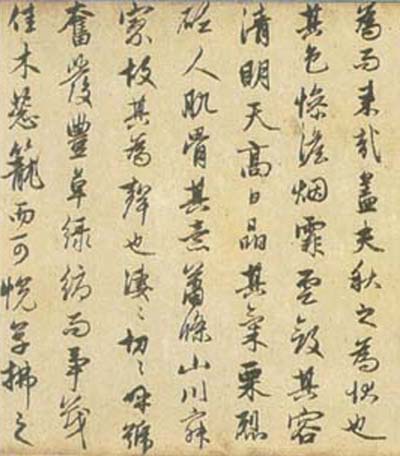 為而来哉盖夫秋之為狀也
其色慘澹烟霏云斂其容
清明天高日晶其氣栗烈
砭人肌骨其意蕭條山川寂
寥故其為聲也淒〻切〻呼號
奮發豐草綠縟而爭茂
佳木葱籠而可悅草拂之